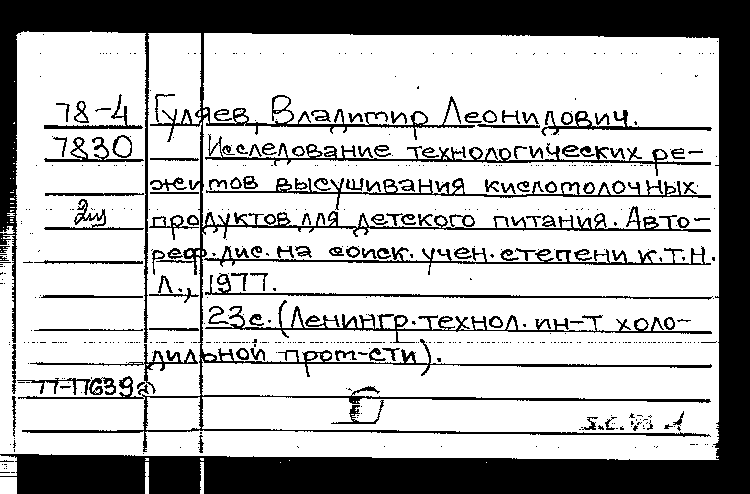 78-4 Гуляев, Владимир Леонидович.
7830 Исследование технологических ре-
жимов высушивания кисломолочных
2ш продуктов для детского питания. Авто-
реф. дис. на соиск. учен. степени к.т.н.
Л., 1977.
23с. (Ленингр. технол. ин-т холо-
дильной пром-сти).
77-17639а